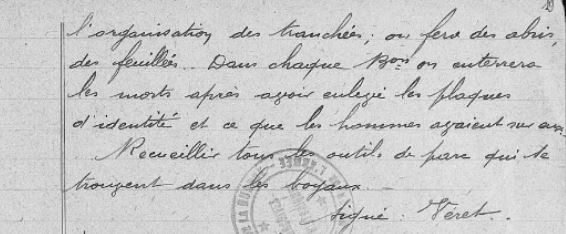 l'organisation des tranchées; on fera des abris,
des feuillées.. Dans chaque Bon on enterrera
les morts après avoir enlevé les plaques
d'identité et ce que les hommes avaient sur eux.
Recueillir tous les outils de parc qui se
trouvent dans les boyaux. —
Signé: Véret.